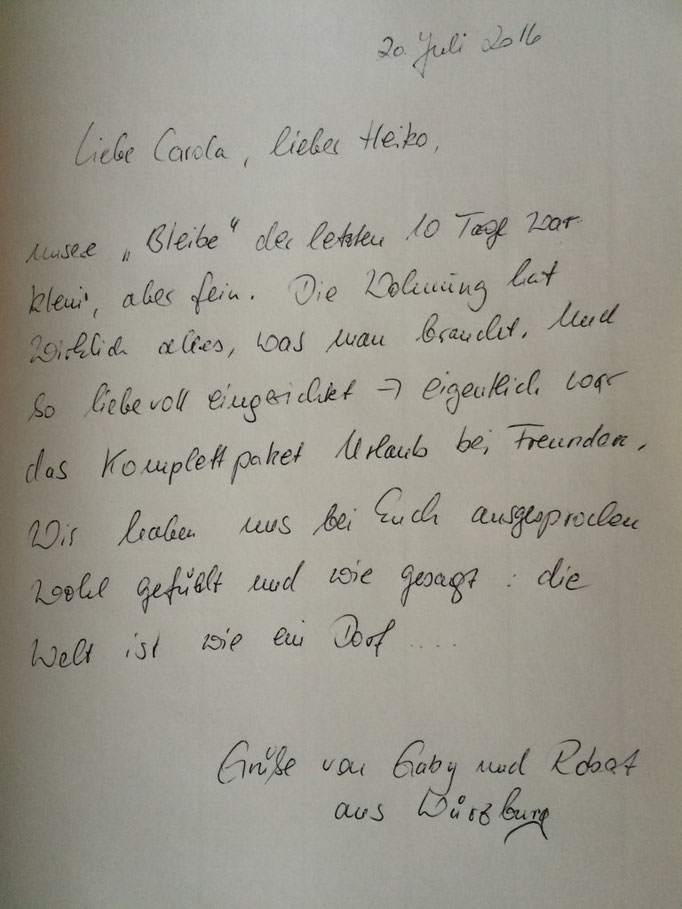 20. Juli 2016
Liebe Carola, lieber Heiko,
unsere „Bleibe“ der letzten 10 Tage war
klein, aber fein. Die Wohnung hat
wirklich alles, was man braucht. Und
so liebevoll eingerichtet → eigentlich war
das Komplettpaket Urlaub bei Freunden.
Wir haben uns bei Euch ausgesprochen
wohl gefühlt und wie gesagt: die
Welt ist wie ein Dorf ....
Grüße von Gaby und Robert
aus Würzburg